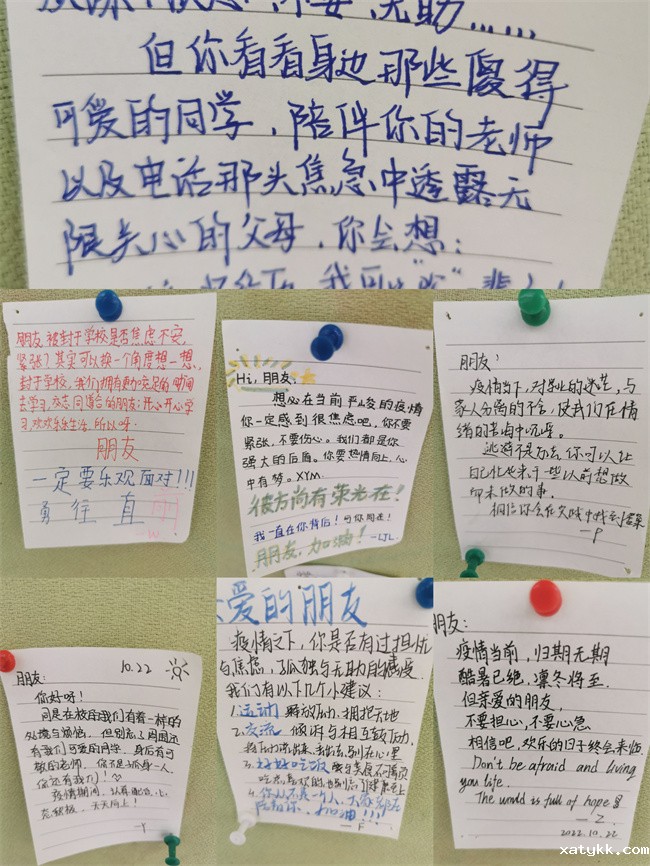 但你看看身边那些傻得
可爱的同学，陪伴你的老师
以及电话那头焦急中透露无
限关心的父母，你会想：
朋友，被封于学校是否焦虑不安，
紧张？其实可以换一个角度想一想，
封于学校，我们拥有更加充足的时间
去学习，交志同道合的朋友；开心开心学
习，欢欢乐乐生活，所以呀
朋友
一定要乐观面对!!!
勇往直前
W
Hi，朋友：
想必在当前严峻的疫情
你一定感到很焦虑吧，你不要
紧张，不要伤心。我们都是你
强大的后盾。你要热情向上，心
中有梦。XYM
彼方尚有荣光在！
我一直在你背后！
朋友，加油！ -LJL
朋友：
疫情当下，对未来的迷茫，与
家人分离的不舍，使我们在情
绪的苦海中沉浮。
逃避不是办法，你可以让
自己忙起来干一些以前想做
却未做的事。
相信你会在实践中找到答案
—P
朋友： 10.22
你好呀！
同是在校的我们有着一样的
处境与烦恼，但别忘了周围还
有我们可爱的同学，身后有可
敬的老师，你不是孤身一人，
你还有我们！♡
疫情期间，
天天向上！
—Y
爱的朋友
疫情之下，你是否有过担忧
与焦虑，孤独与无助的感受
我们有以下几个小建议：
1.运动 释放压力，拥抱天地
2.交流 倾诉与相互鼓励，
3.好好吃饭
4.你从不是一个人，大家都在
陪着你，加油!!!
—F
朋友：
疫情当前，归期无期
酷暑已绝，凛冬将至
但亲爱的朋友，
不要担心，不要心急
相信吧，欢乐的日子终会来临
Don't be afraid and living
you life.
The world is full of hope
—Z
2022.10.22
xatykk.com